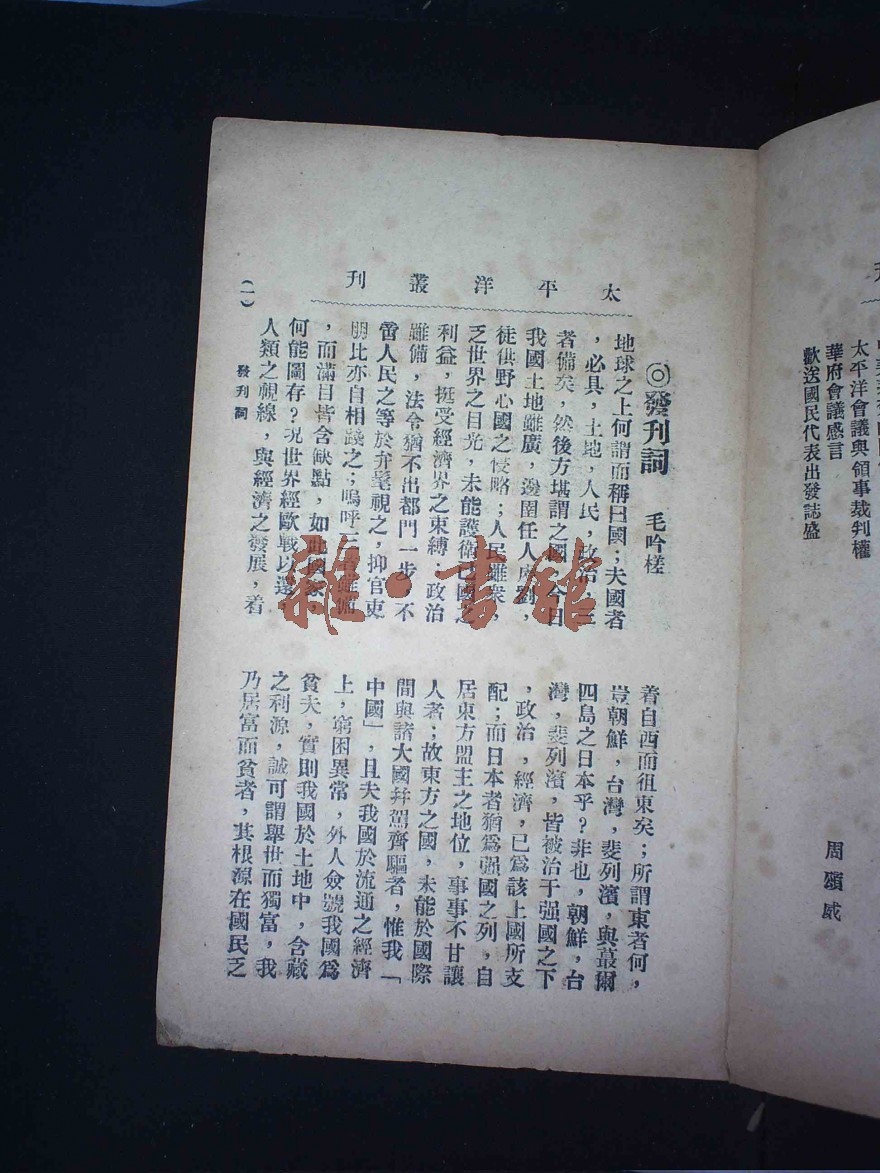 太平洋叢刊
◎發刊詞　毛吟槎
地球之上何謂而稱曰國；夫國者
，必具，土地，人民，政治，三
者備矣，然後方堪謂之國，今日
我國土地雖廣，邊圉任人宰割，
徒供野心國之侵略；人民雖衆，
乏世界之目光，未能護衛己國之
利益，挺受經濟界之束縛；政治
雖備，法令猶不出都門一步，不
啻人民之等於弁髦視之，抑官吏
朋比亦自相踐之；嗚呼三者雖備
，而滿目皆含缺點，如此國家，
何能圖存？現世界經歐戰以還，
人類之視線，與經濟之發展，着
着自西而徂東矣；所謂東者何，
豈朝鮮，台灣，斐列濱，與蕞爾
四島之日本乎？非也，朝鮮，台
灣，斐列濱，皆被治于强國之下
，政治，經濟，已爲該上國所支
配；而日本者猶爲强國之列，自
居東方盟主之地位，事事不甘讓
人者；故東方之國，未能於國際
間與諸大國幷駕齊驅者，惟我「
中國」，且夫我國於流通之經濟
上，窮困異常，外人僉號我國爲
貧夫，實則我國於土地中，含藏
之利源，誠可謂舉世而獨富，我
乃居富而貧者，其根源在國民乏
發刊詞
（一）
太平洋會議與領事裁判權
華府會議感言
歡送國民代表出發誌盛
周頌威
雜·書館